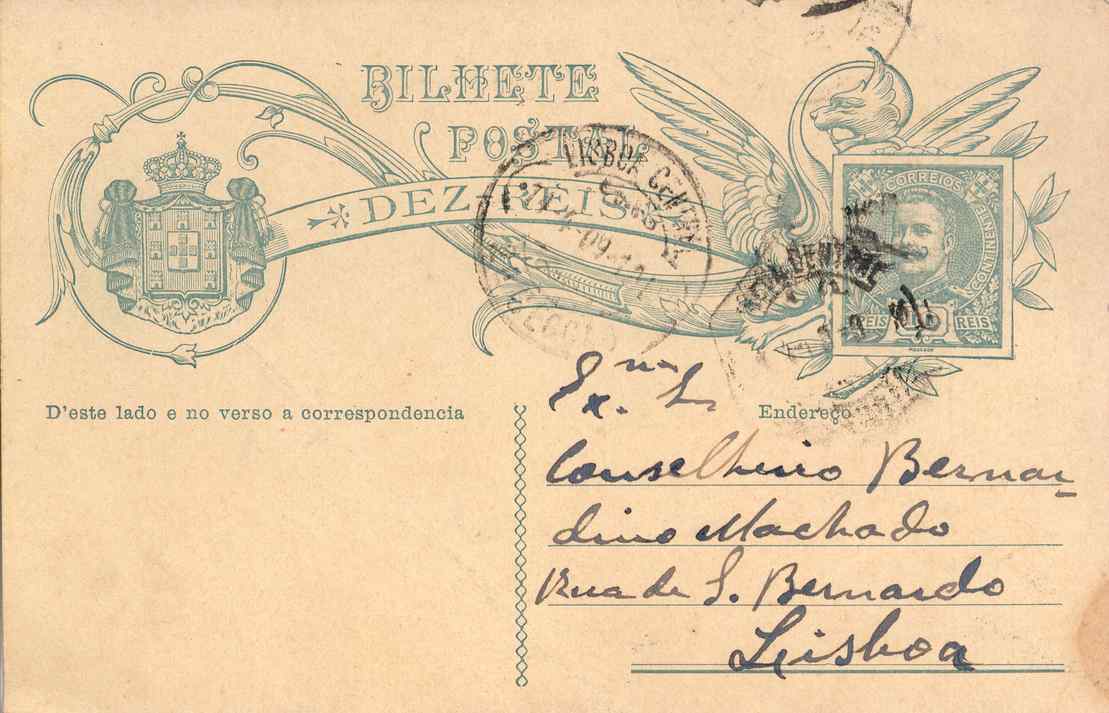 BILHETE
POSTAL
DEZ RÉIS
CORREIOS
CONTINENTE
REIS REIS
MOUCHON
LISBOA CENTRAL
CENTRAL
D'este lado e no verso a correspondencia
Endereço
Ex.mo Sr
Conselheiro Bernar-
dino Machado
Rua de S. Bernardo
Lisboa